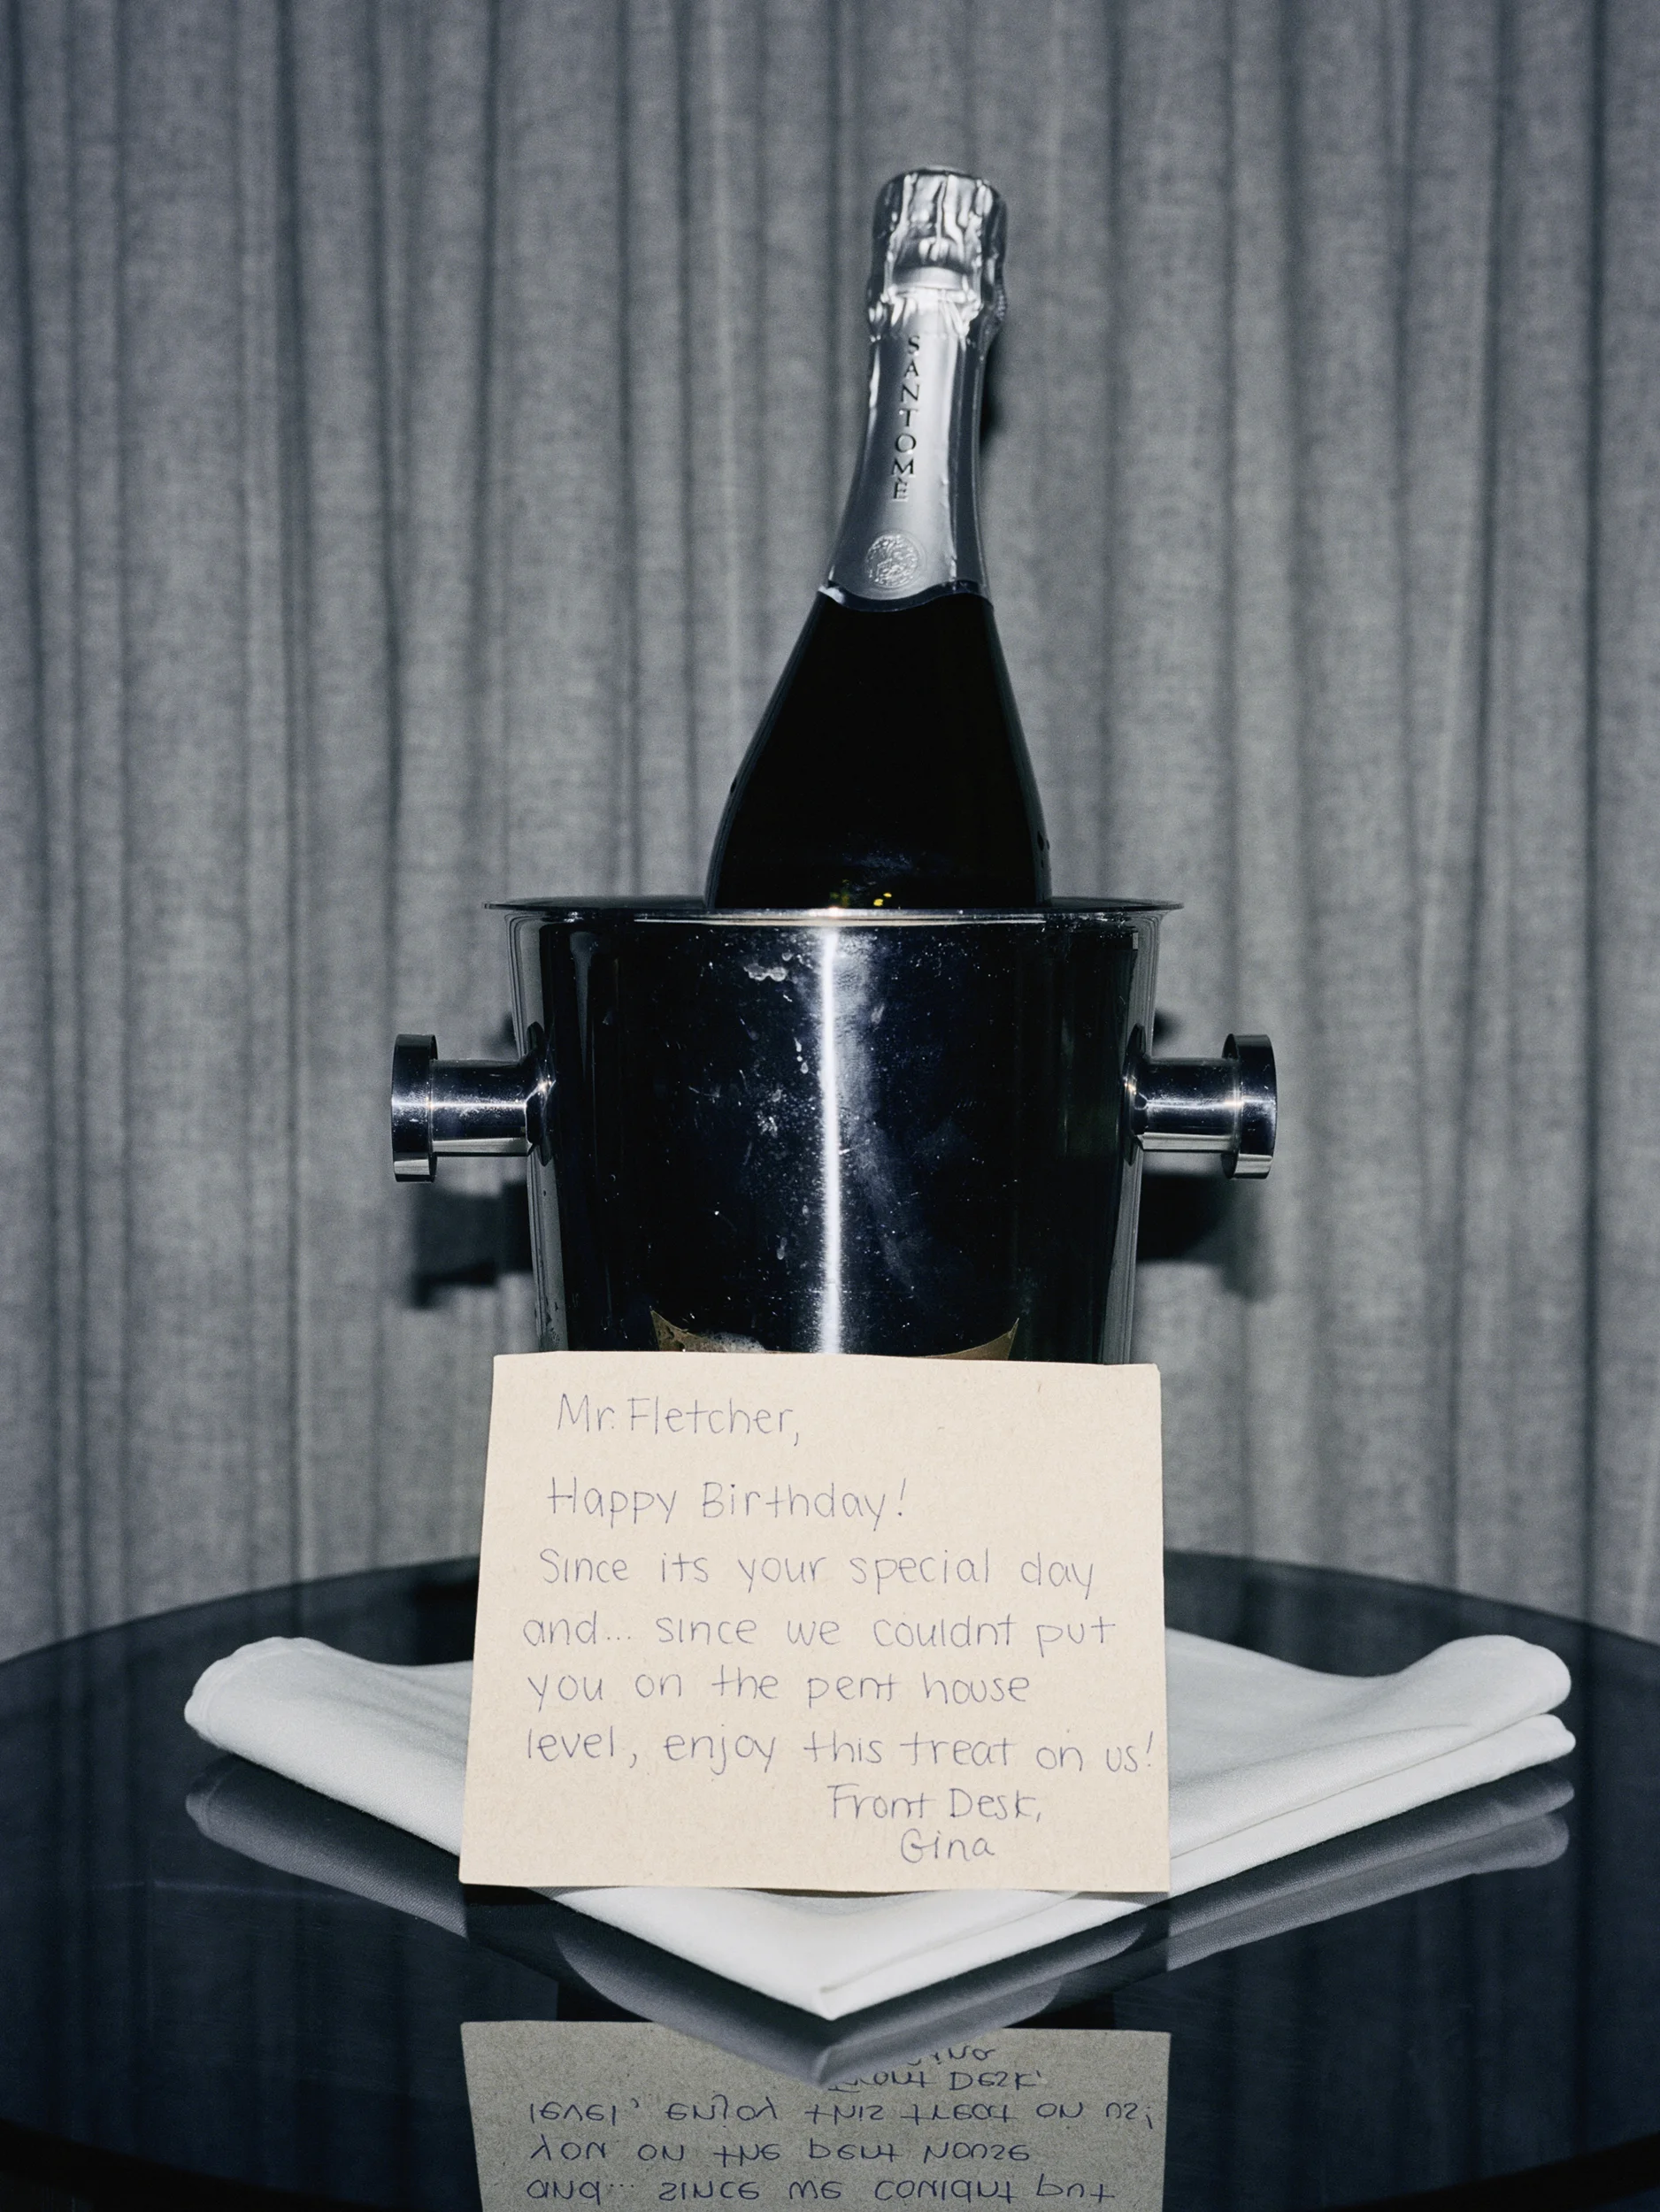 SANTOMÉ
Mr. Fletcher,
Happy Birthday!
Since its your special day
and... since we couldnt put
you on the pent house
level, enjoy this treat on us!
Front Desk,
Gina